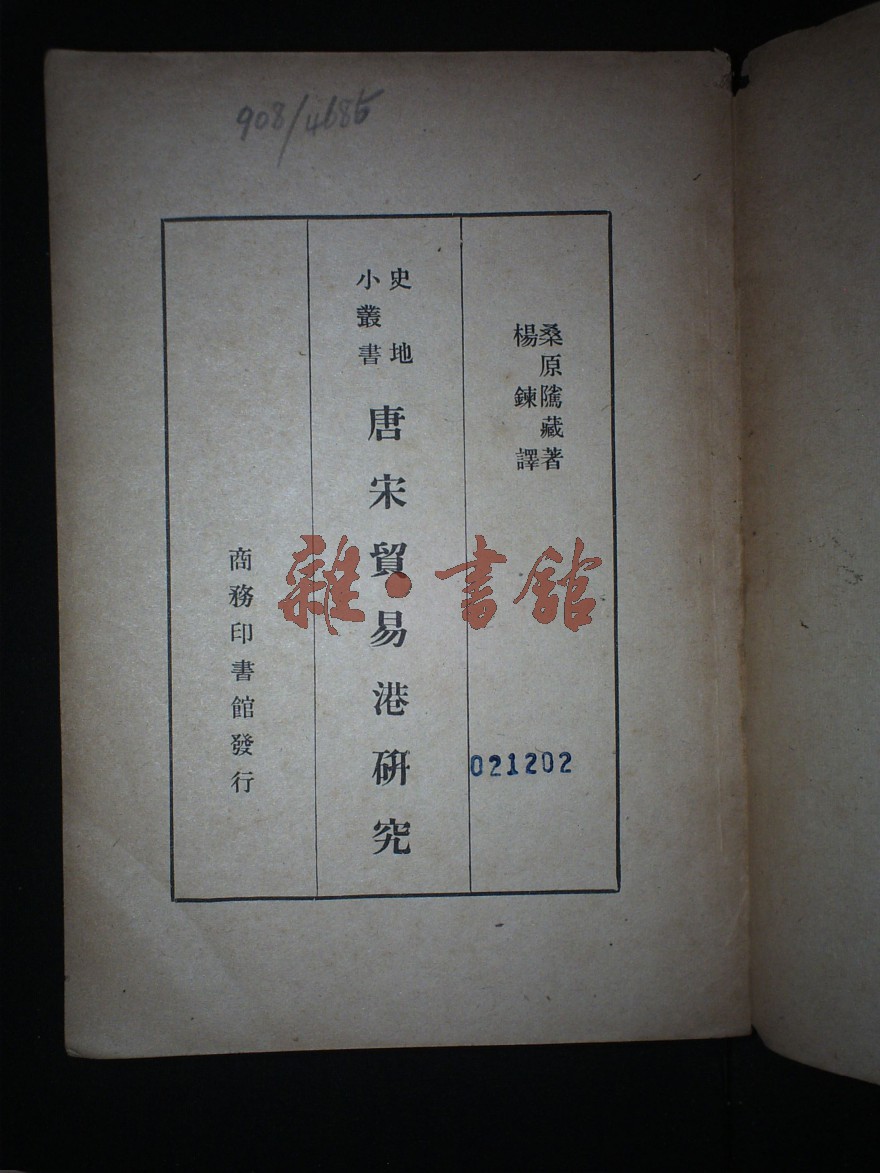 908/4685
桑原隲藏著
楊鍊譯
史地
小叢書
唐宋貿易港研究
商務印書館發行
雜·書館
021202